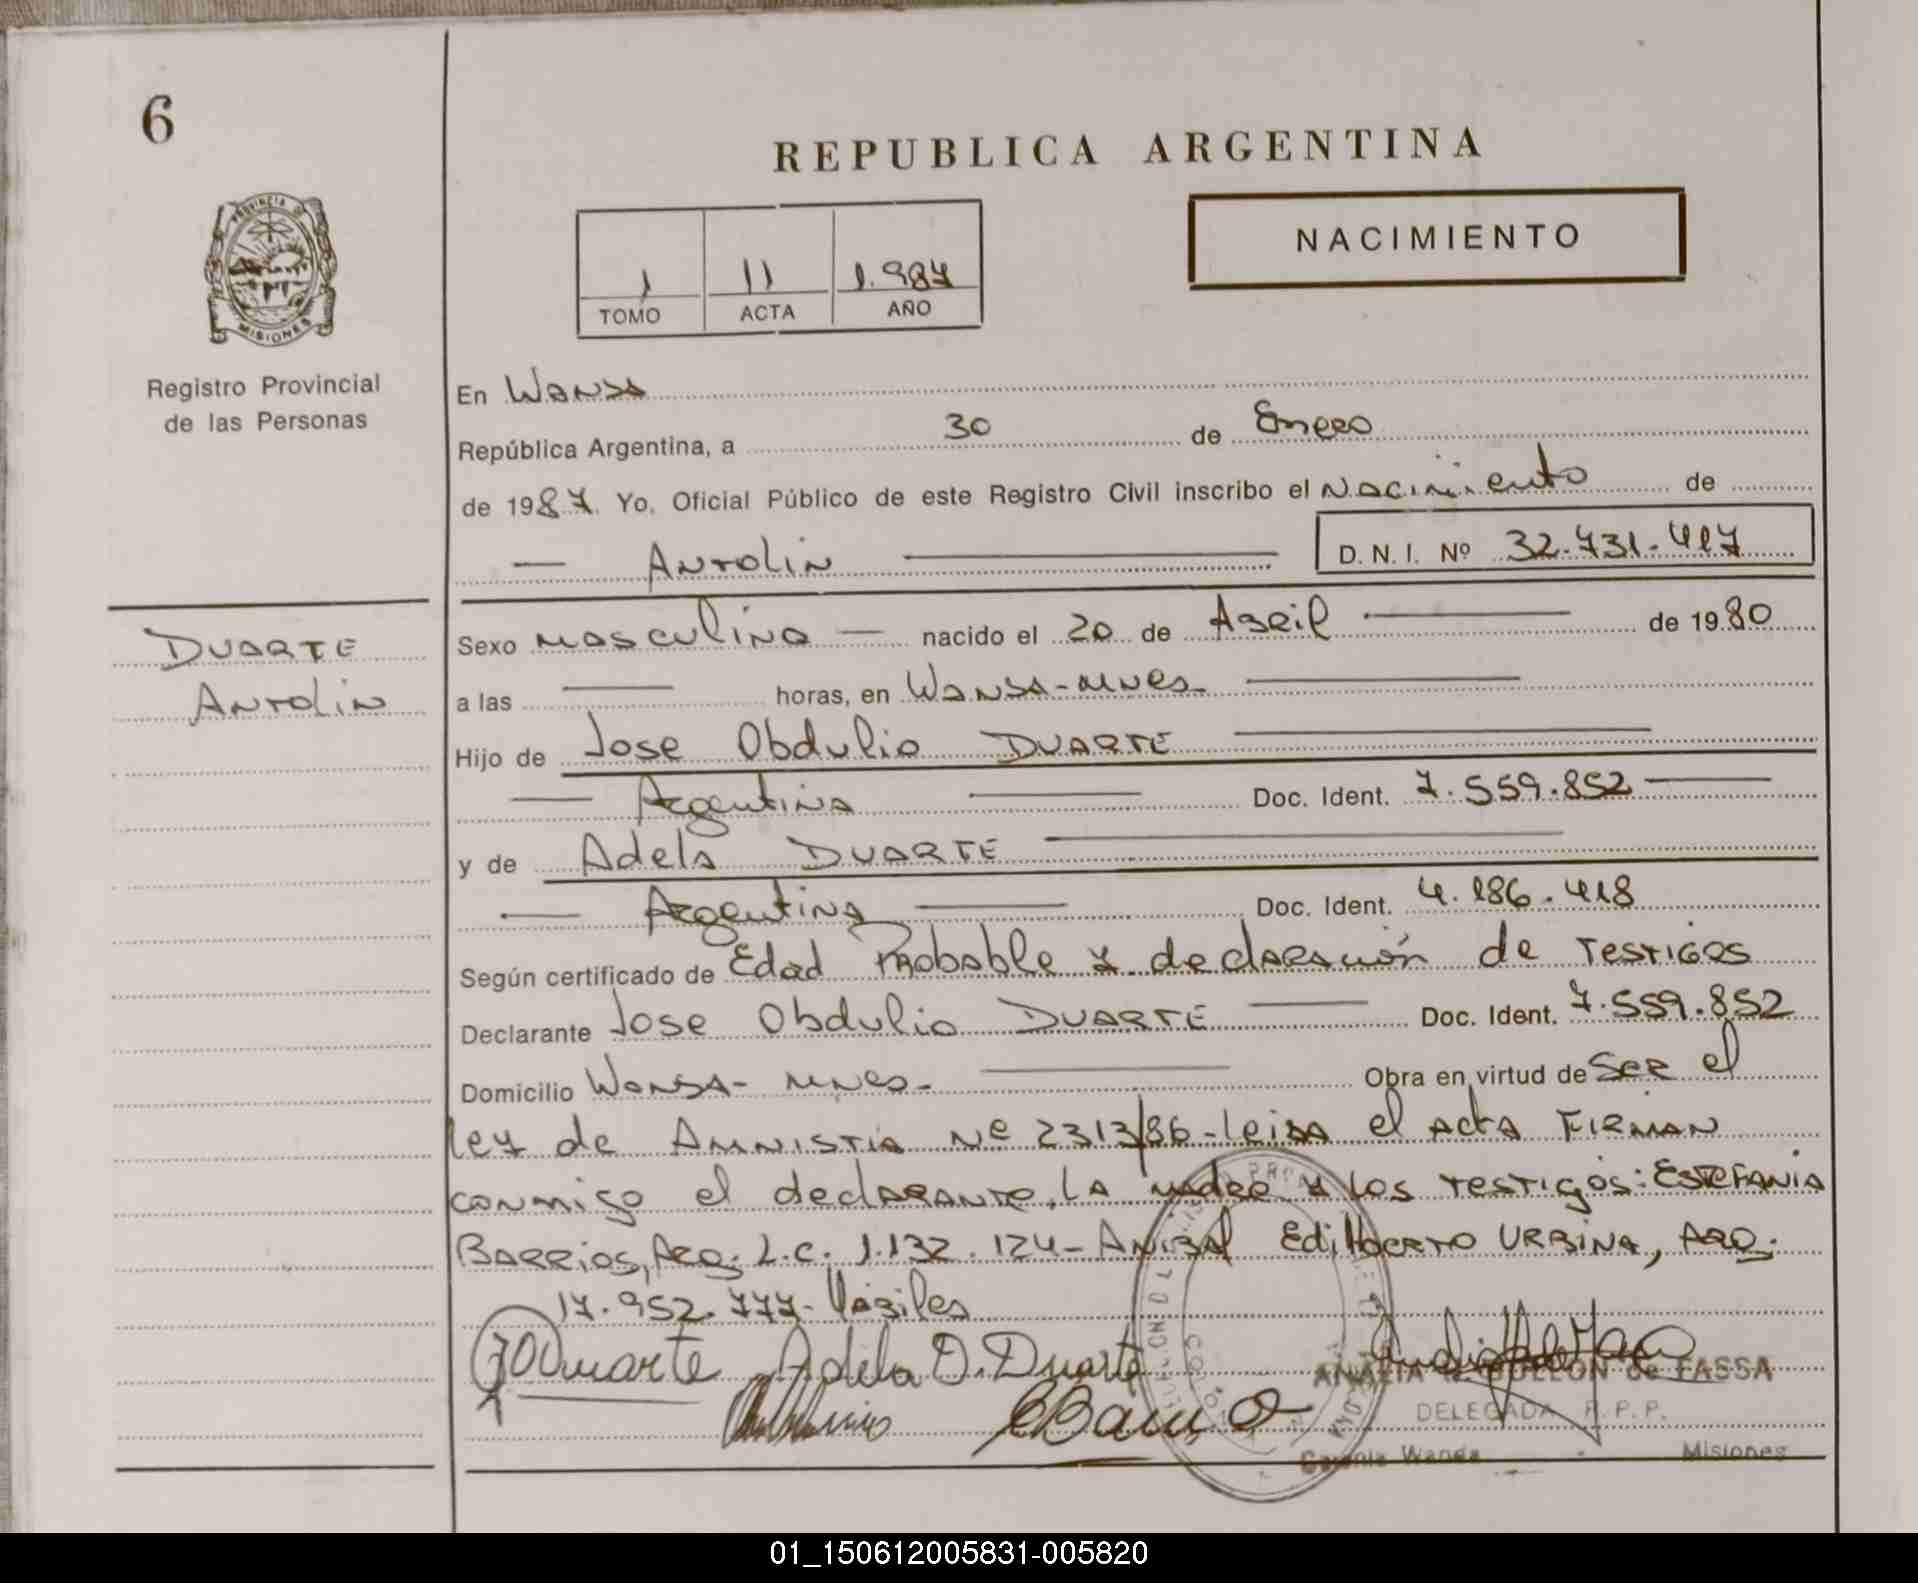 6
REPUBLICA ARGENTINA
PROVINCIA DE
MISIONES
NACIMIENTO
1 11 1.987
TOMO ACTA AÑO
Registro Provincial
de las Personas
En Wanda
República Argentina, a 30 de Enero
de 1987. Yo, Oficial Público de este Registro Civil inscribo el Nacimiento de
— Antolin — D. N. I. Nº 32.731.417
DUARTE
Antolin
Sexo masculino — nacido el 20 de Abril — de 1980
a las — horas, en Wanda-Mnes.
Hijo de Jose Obdulio DUARTE —
— Argentina — Doc. Ident. 7.559.852 —
y de Adela DUARTE —
— Argentina — Doc. Ident. 4.186.418
Según certificado de Edad Probable y declaración de Testigos
Declarante Jose Obdulio DUARTE — Doc. Ident. 7.559.852
Domicilio Wanda- Mnes. — Obra en virtud de Ser el
Ley de Amnistia Nº 2313/86-Leida el acta FIRMAN
conmigo el declarante, la madre y los testigos: ESTEFANIA
BARRIOS, Arg. L.C. 1.132.124- Anibal Edilberto URBINA, ARG.
17.952.777- Hábiles
JODuarte Adela D. Duarte
EBarrio
ANALIA de FASSA
DELEGADA R.P.P.
Colonia Wanda Misiones
01_150612005831-005820